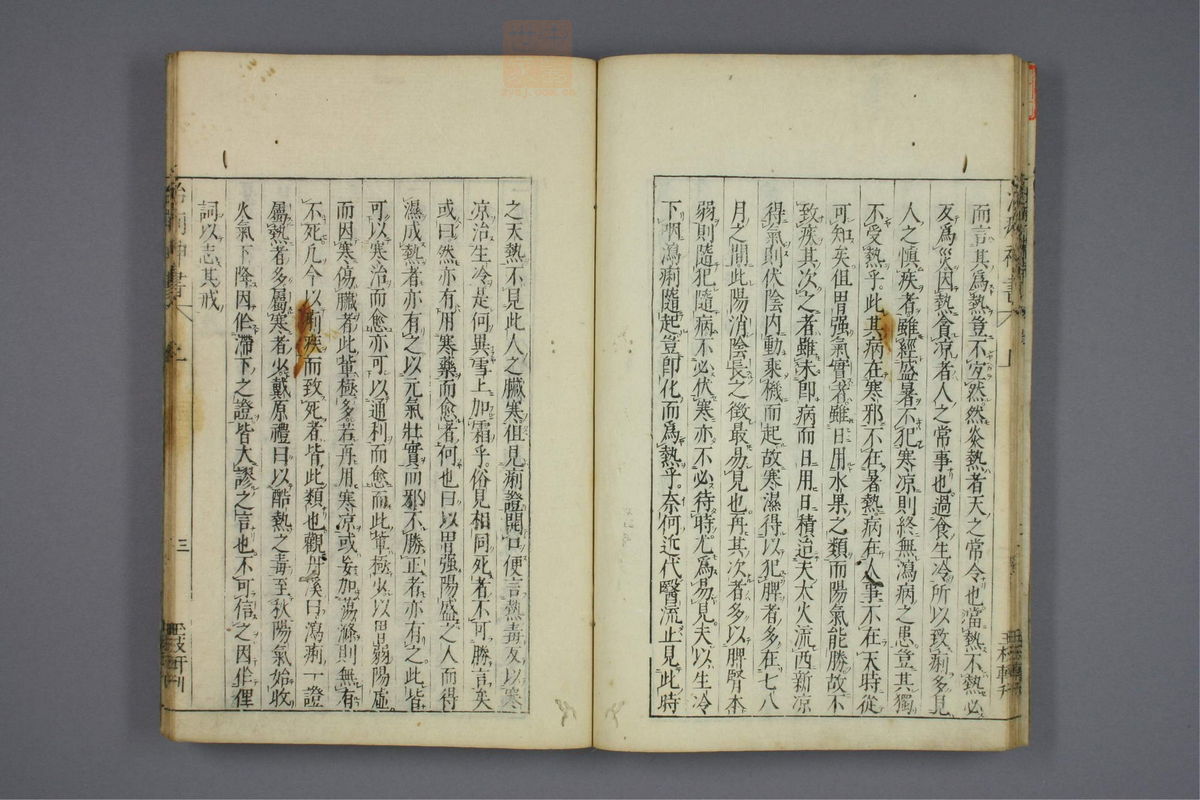 而言其為熱豈不宜然然炎熱者天之常令也當熱不熱必
反為災因熱貪凉者人之常事也過食生冷所以致痢多見
人之慎疾者雖經盛暑不犯寒凉則終無瀉病之患豈其獨
不受熱乎此其病在寒邪不在暑熱病在人事不在天時從
可知矣但胃强氣實者雖日用水果之類而陽氣能勝故不
致疾其次之者雖未即病而日用日積迨夫大火流西新凉
得氣則伏陰內動乘機而起故寒濕得以犯脾者多在七八
月之間此陽消陰長之徵最易見也再其次者多以脾腎本
弱則隨犯隨病不必伏寒亦不必待時尤為易見夫以生冷
下咽瀉痢隨起豈即化而為熱乎奈何近代醫流止見此時
之天熱不見此人之臟寒但見痢證開口便言熱毒反以寒
凉治生冷是何異雪上加霜乎俗見相同死者不可勝言矣
或曰然亦有用寒藥而愈者何也曰以胃强陽盛之人而得
濕成熱者亦有之以元氣壯實而邪不勝正者亦有之此皆
可以寒治而愈亦可以通利而愈而此軰極少以胃弱陽虛
而因寒傷臟者此軰極多若再用寒凉或妄加蕩滌則無有
不死凡今以痢疾而致死者皆此類也觀丹溪曰瀉痢一證
屬熱者多屬寒者少戴原禮曰以酷熱之毒至秋陽氣始收
火氣下降因作滯下之證皆大謬之言也不可信之因作俚
詞以志其戒
三